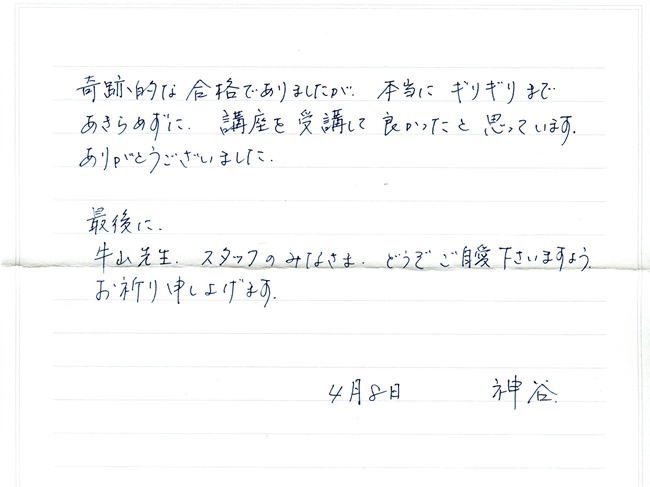 奇跡的な合格でありましたが、本当にギリギリまで
あきらめずに、講座を受講して良かったと思っています。
ありがとうございました。
最後に、
牛山先生、スタッフのみなさま、どうぞご自愛下さいますよう、
お祈り申し上げます。
4月8日 神谷